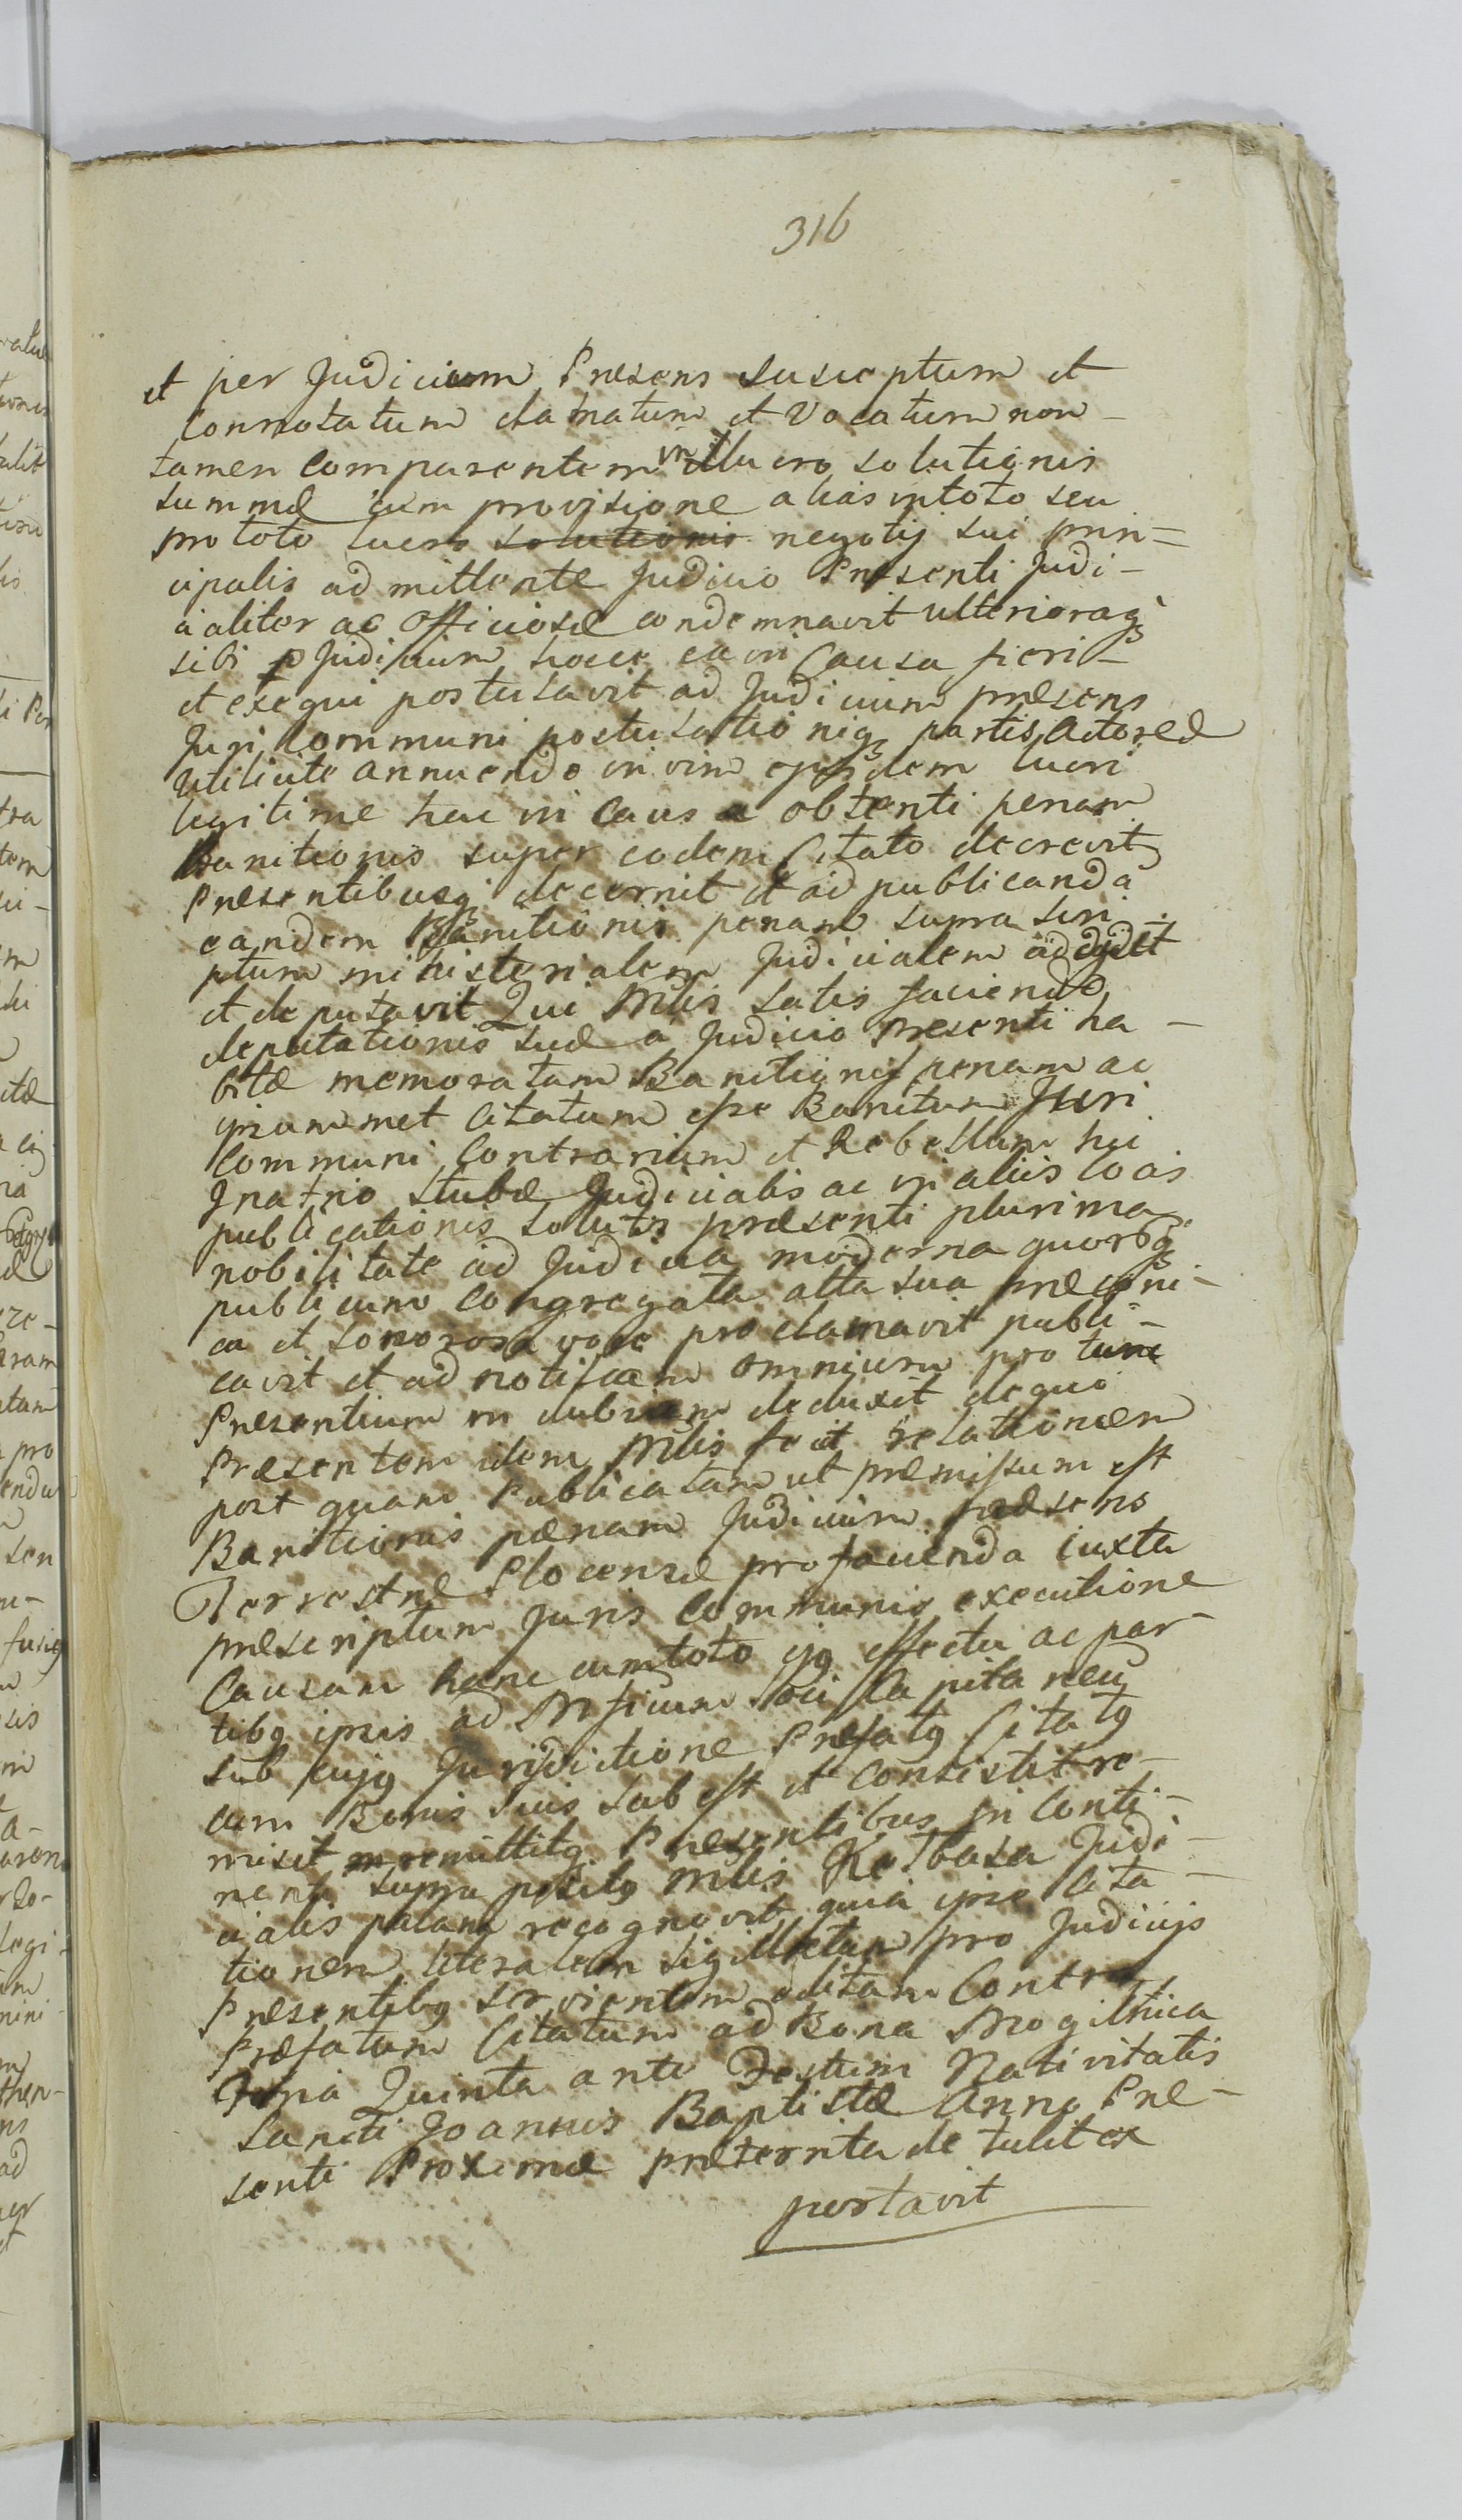 316
et per Judicium Præsens Susceptum et
Connotatum clamatum et Vocatum non -
tamen Comparentem in lucro solutionis
summæ cum provisione alias in toto seu
pro toto lucro solutionis negotij sui prin=
cipalis admittente Judicio Præsenti Judi-
cialiter ac Officiosæ condemnavit ulterioraq3
sibi p Judicium hocce ea in Causa fieri -
et exequi postulavit ad Judicium præsens
Juri Communi postulationiq3 partis Actoreæ
utilicite annuendo in vim ejusdem lucri
legitime hac in Causa obtenti penam
Banitionis super eodem Citato decrevit
Præsentibusq3 decernit et ad publicanda
eandem Banitionis penam supra scri
ptum ministerialem Judicialem addidit
et deputavit Qui Mlis satis faciendo
deputationis suæ a Judicio Præsenti ha -
bitæ memoratam Banitionis penam ac
ipsummet Citatum esse Banitum Juri
Communi Contrarium et Rebellem hic
In atrio Stubæ Judicialis ac in aliis locis
publicationis solitis præsenti plurima
nobilitate ad Judicia moderna quorq3
publicum Congregata alta sua præconi-
ca et sonorosa voce proclamavit publi-
cavit et ad notitiam omnium pro tunc
Præsentium indubiam deduxit de quo
Præsentem idem Mlis fecit relationem
post quam Publicatam ut præmissum est
Banitionis pænam Judicium præsens
Terrestre Plocense pro facienda iuxta
præscriptum Juris Communis executione
Causam hanc cum toto ejq effectu ac par-
tibq ipsis ad Officium loci Capitaneu
sub cujq Jurisdictione Præfatq Citatq
cum Bonis Suis subest et Consistit re-
misit remittitq Præsentibus In Conti-
nenti supra positq Mlis Kołbasa Judi-
cialis palam recognovit quia ipse Cita -
tionem literalem sigillatam pro Judicijs
Præsentibq servientem editam Contra
Præfatum Citatum ad Bona Mogilnica
Feria Quinta ante Festum Nativitatis
Sancti Joannis Baptistæ Anno Præ-
senti Proxime præterita detulit ex
portavit